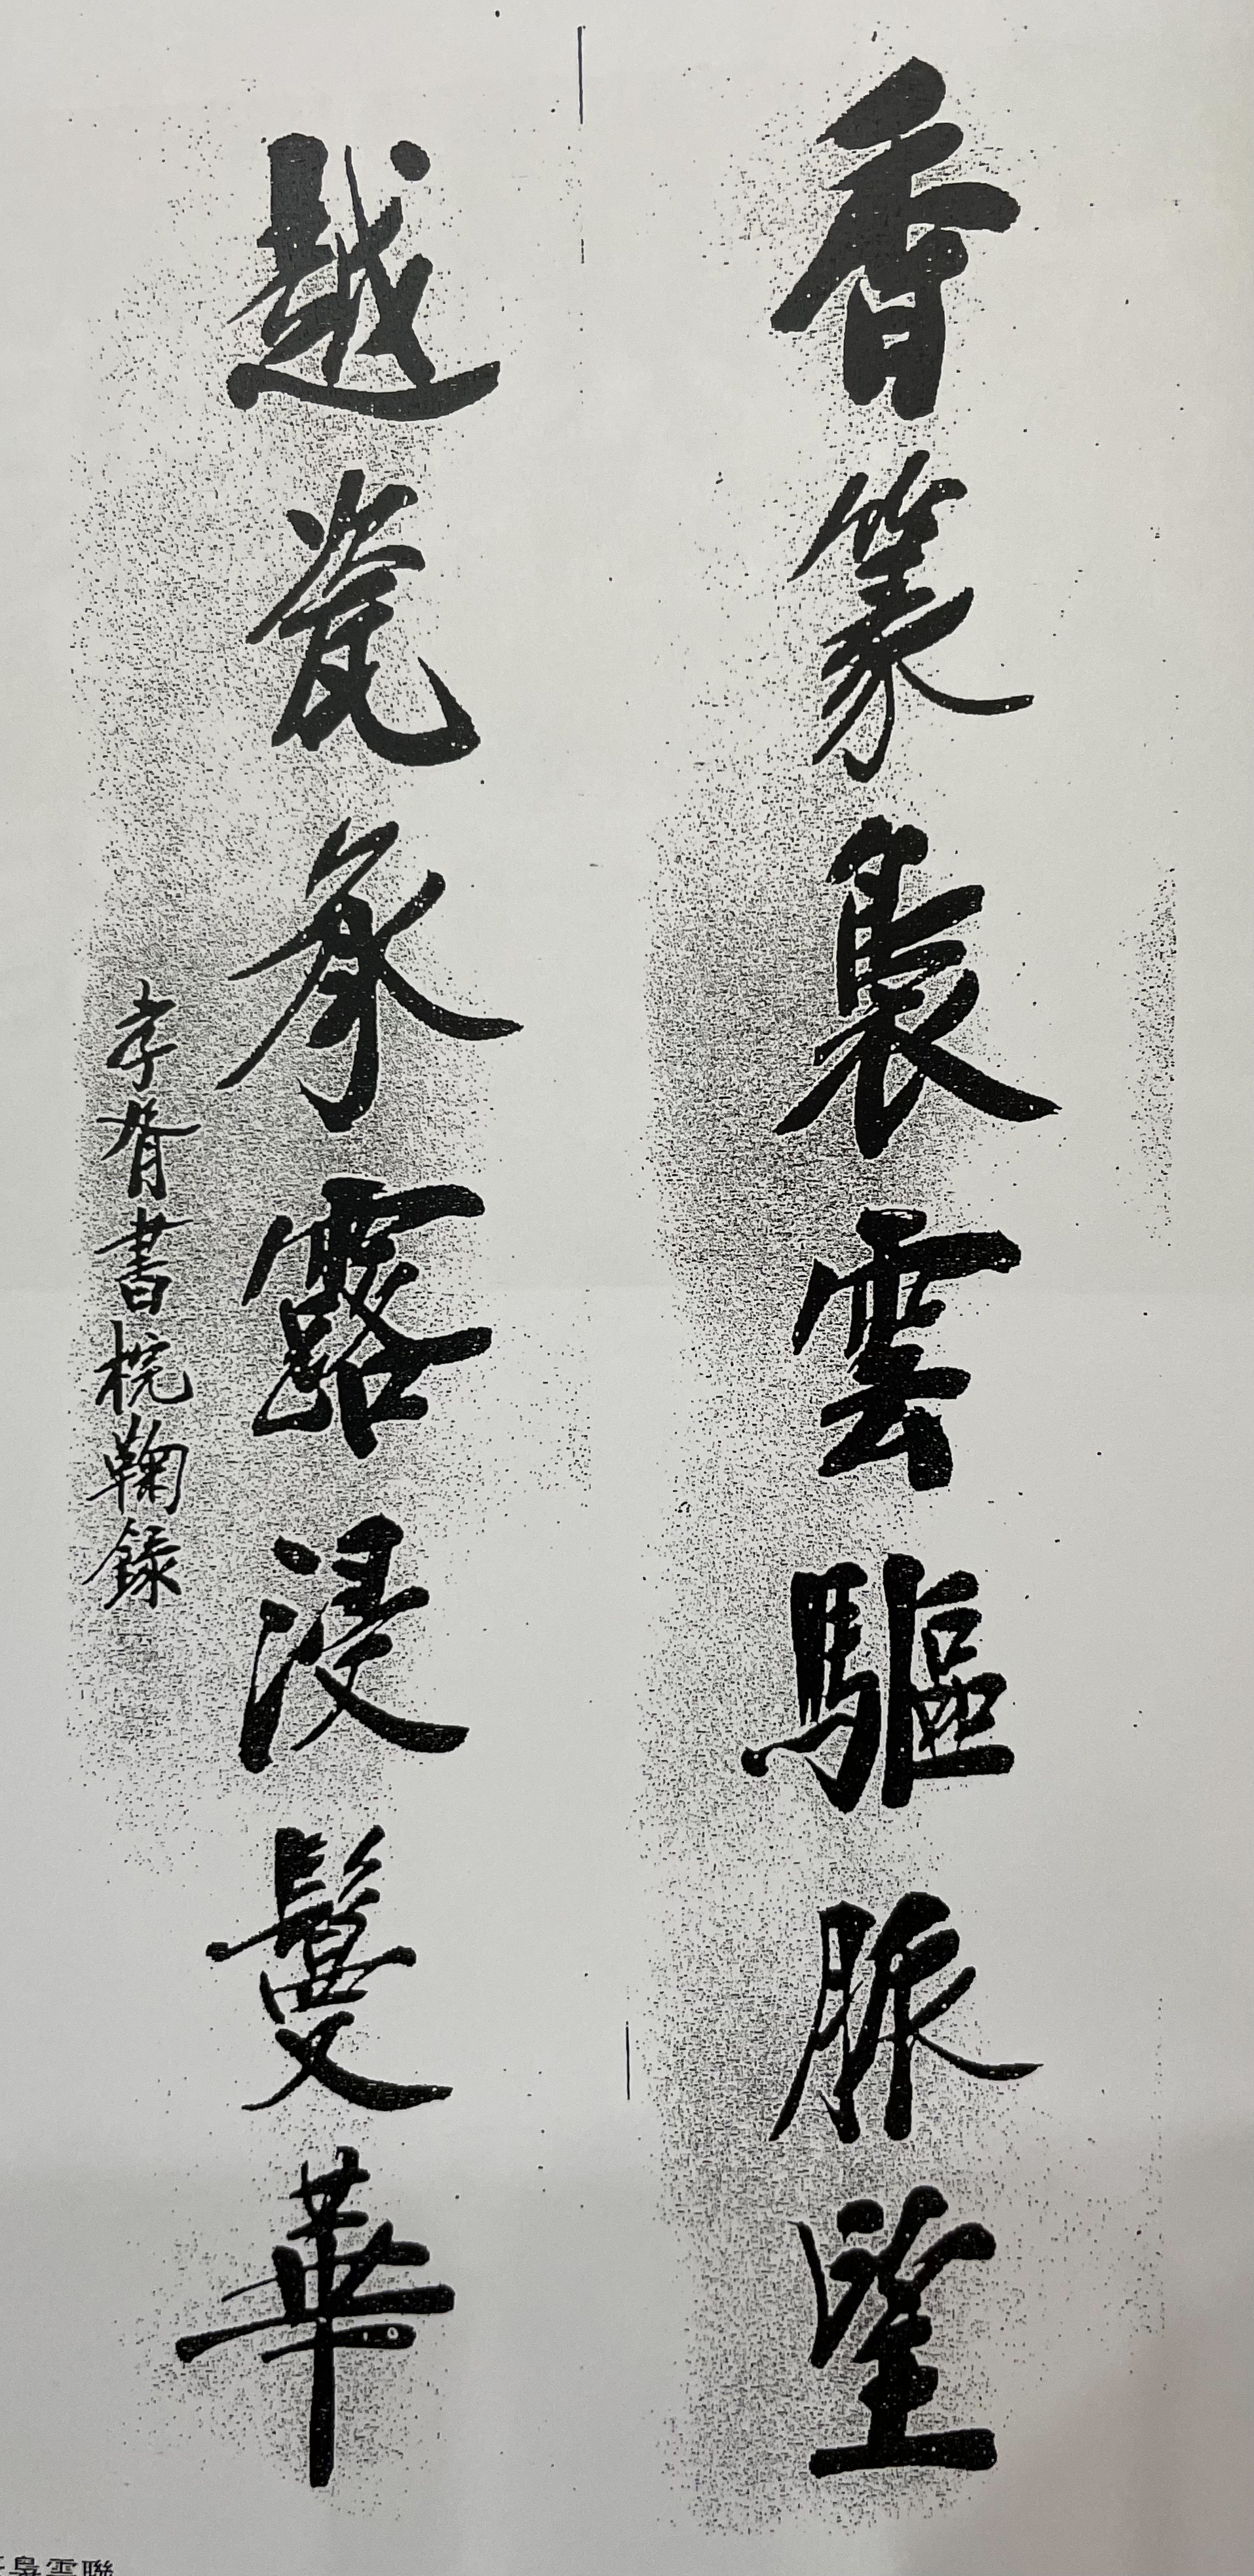 香篆裊雲驅脈望
越瓷承露浸鬘華
孝胥書梡鞠錄
雲聯